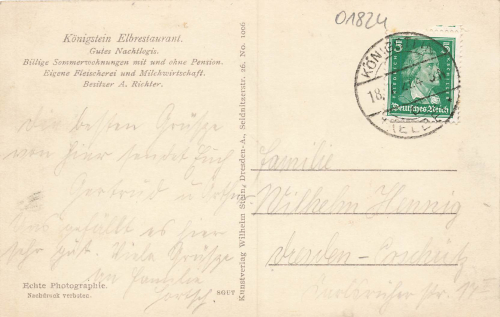 01824
Königstein Elbrestaurant.
Gutes Nachtlogis.
Billige Sommerwohnungen mit und ohne Pension.
Eigene Fleischerei und Milchwirtschaft.
Besitzer A. Richter.
5 5
Deutsches Reich
KÖNIG
18.
(ELBE)
Die besten Grüße
von hier sendet Euch
Gertrud u.
Uns gefällt es hier
sehr gut. Viele Grüße
Familie
Familie
Wilhelm Hennig
Dresden-
Karlsruher Str.
Kunstverlag Wilhelm Stein, Dresden-A., Seidnitzerstr. 26. No. 1006
Echte Photographie.
Nachdruck verboten.